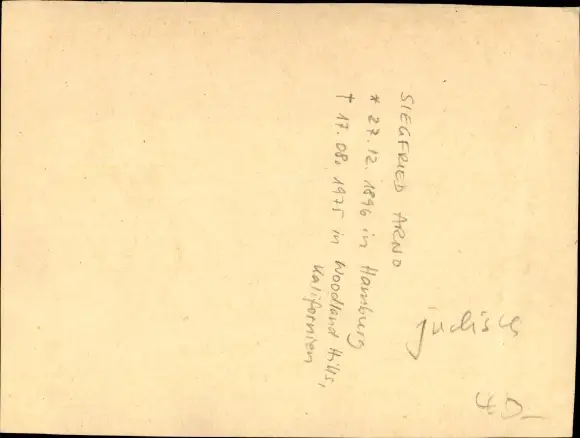 SIEGFRIED ARNO
* 27.12.1896 in Hamburg
† 17.08.1975 in Woodland Hills,
Kalifornien
jüdisch